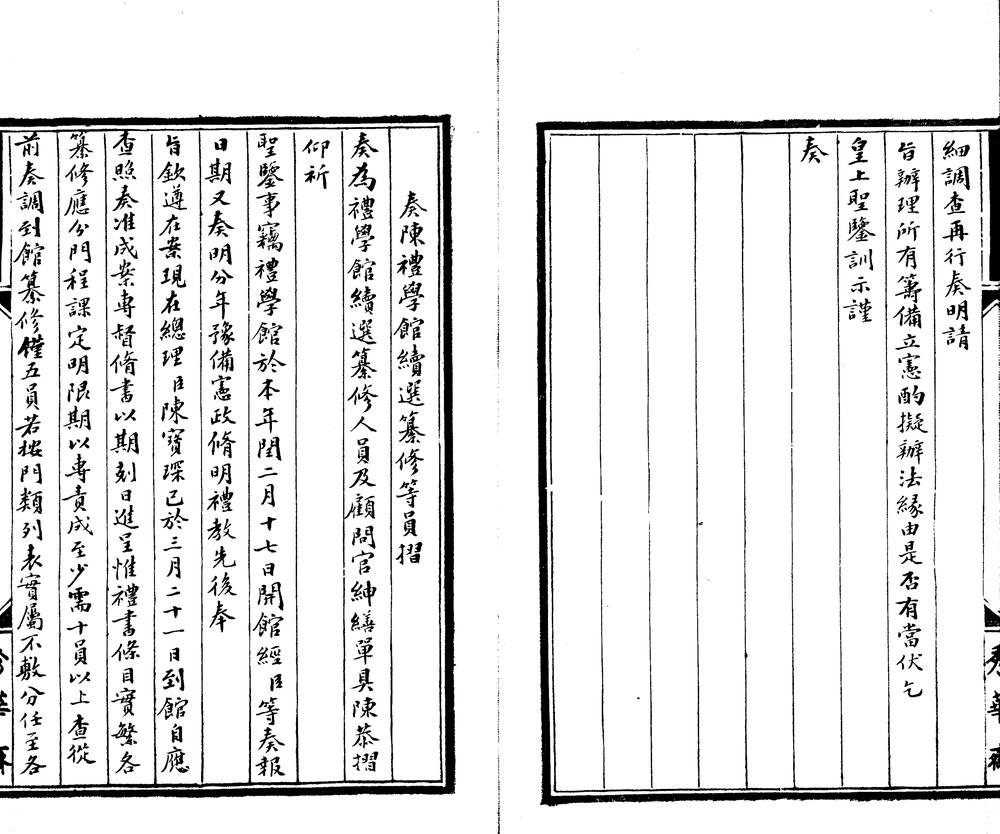 細調查再行奏明請
旨辦理所有籌備立憲酌擬辦法緣由是否有當伏乞
皇上聖鑒訓示謹
奏
奏陳禮學館續選纂修等員摺
奏為禮學館續選纂修人員及顧問官紳繕單具陳恭摺
仰祈
聖鑒事竊禮學館於本年閏二月十七日開館經臣等奏報
日期又奏明分年豫備憲政脩明禮教先後奉
旨欽遵在案現在總理臣陳寶琛已於三月二十一日到館自應
查照奏准成案專督脩書以期刻日進呈惟禮書條目實繁各
纂修應分門程課定明限期以專責成至少需十員以上查從
前奏調到館纂修僅五員若按門類列表實屬不敷分任至各